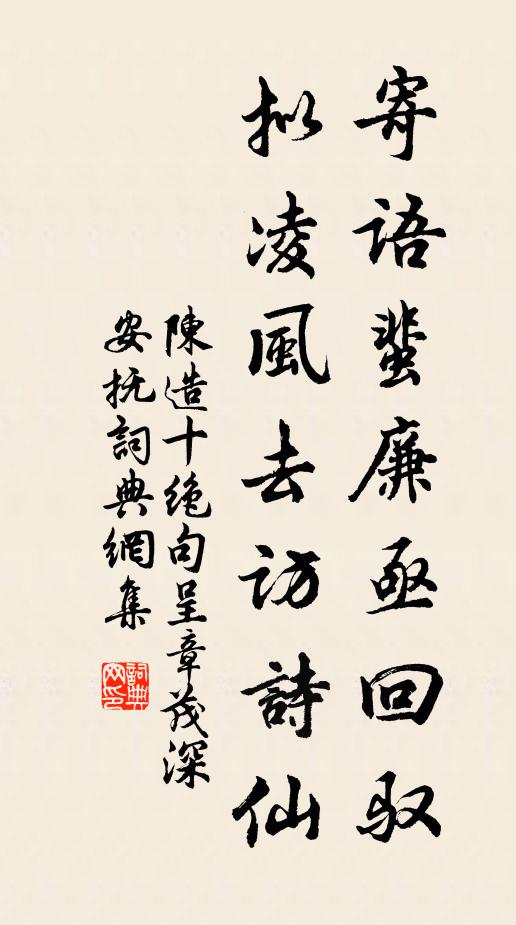 寄語蜚廉亟回馭
拟凌風去访詩仙
陳造十绝句呈章茂深
安抚詞典網集
詞典网印